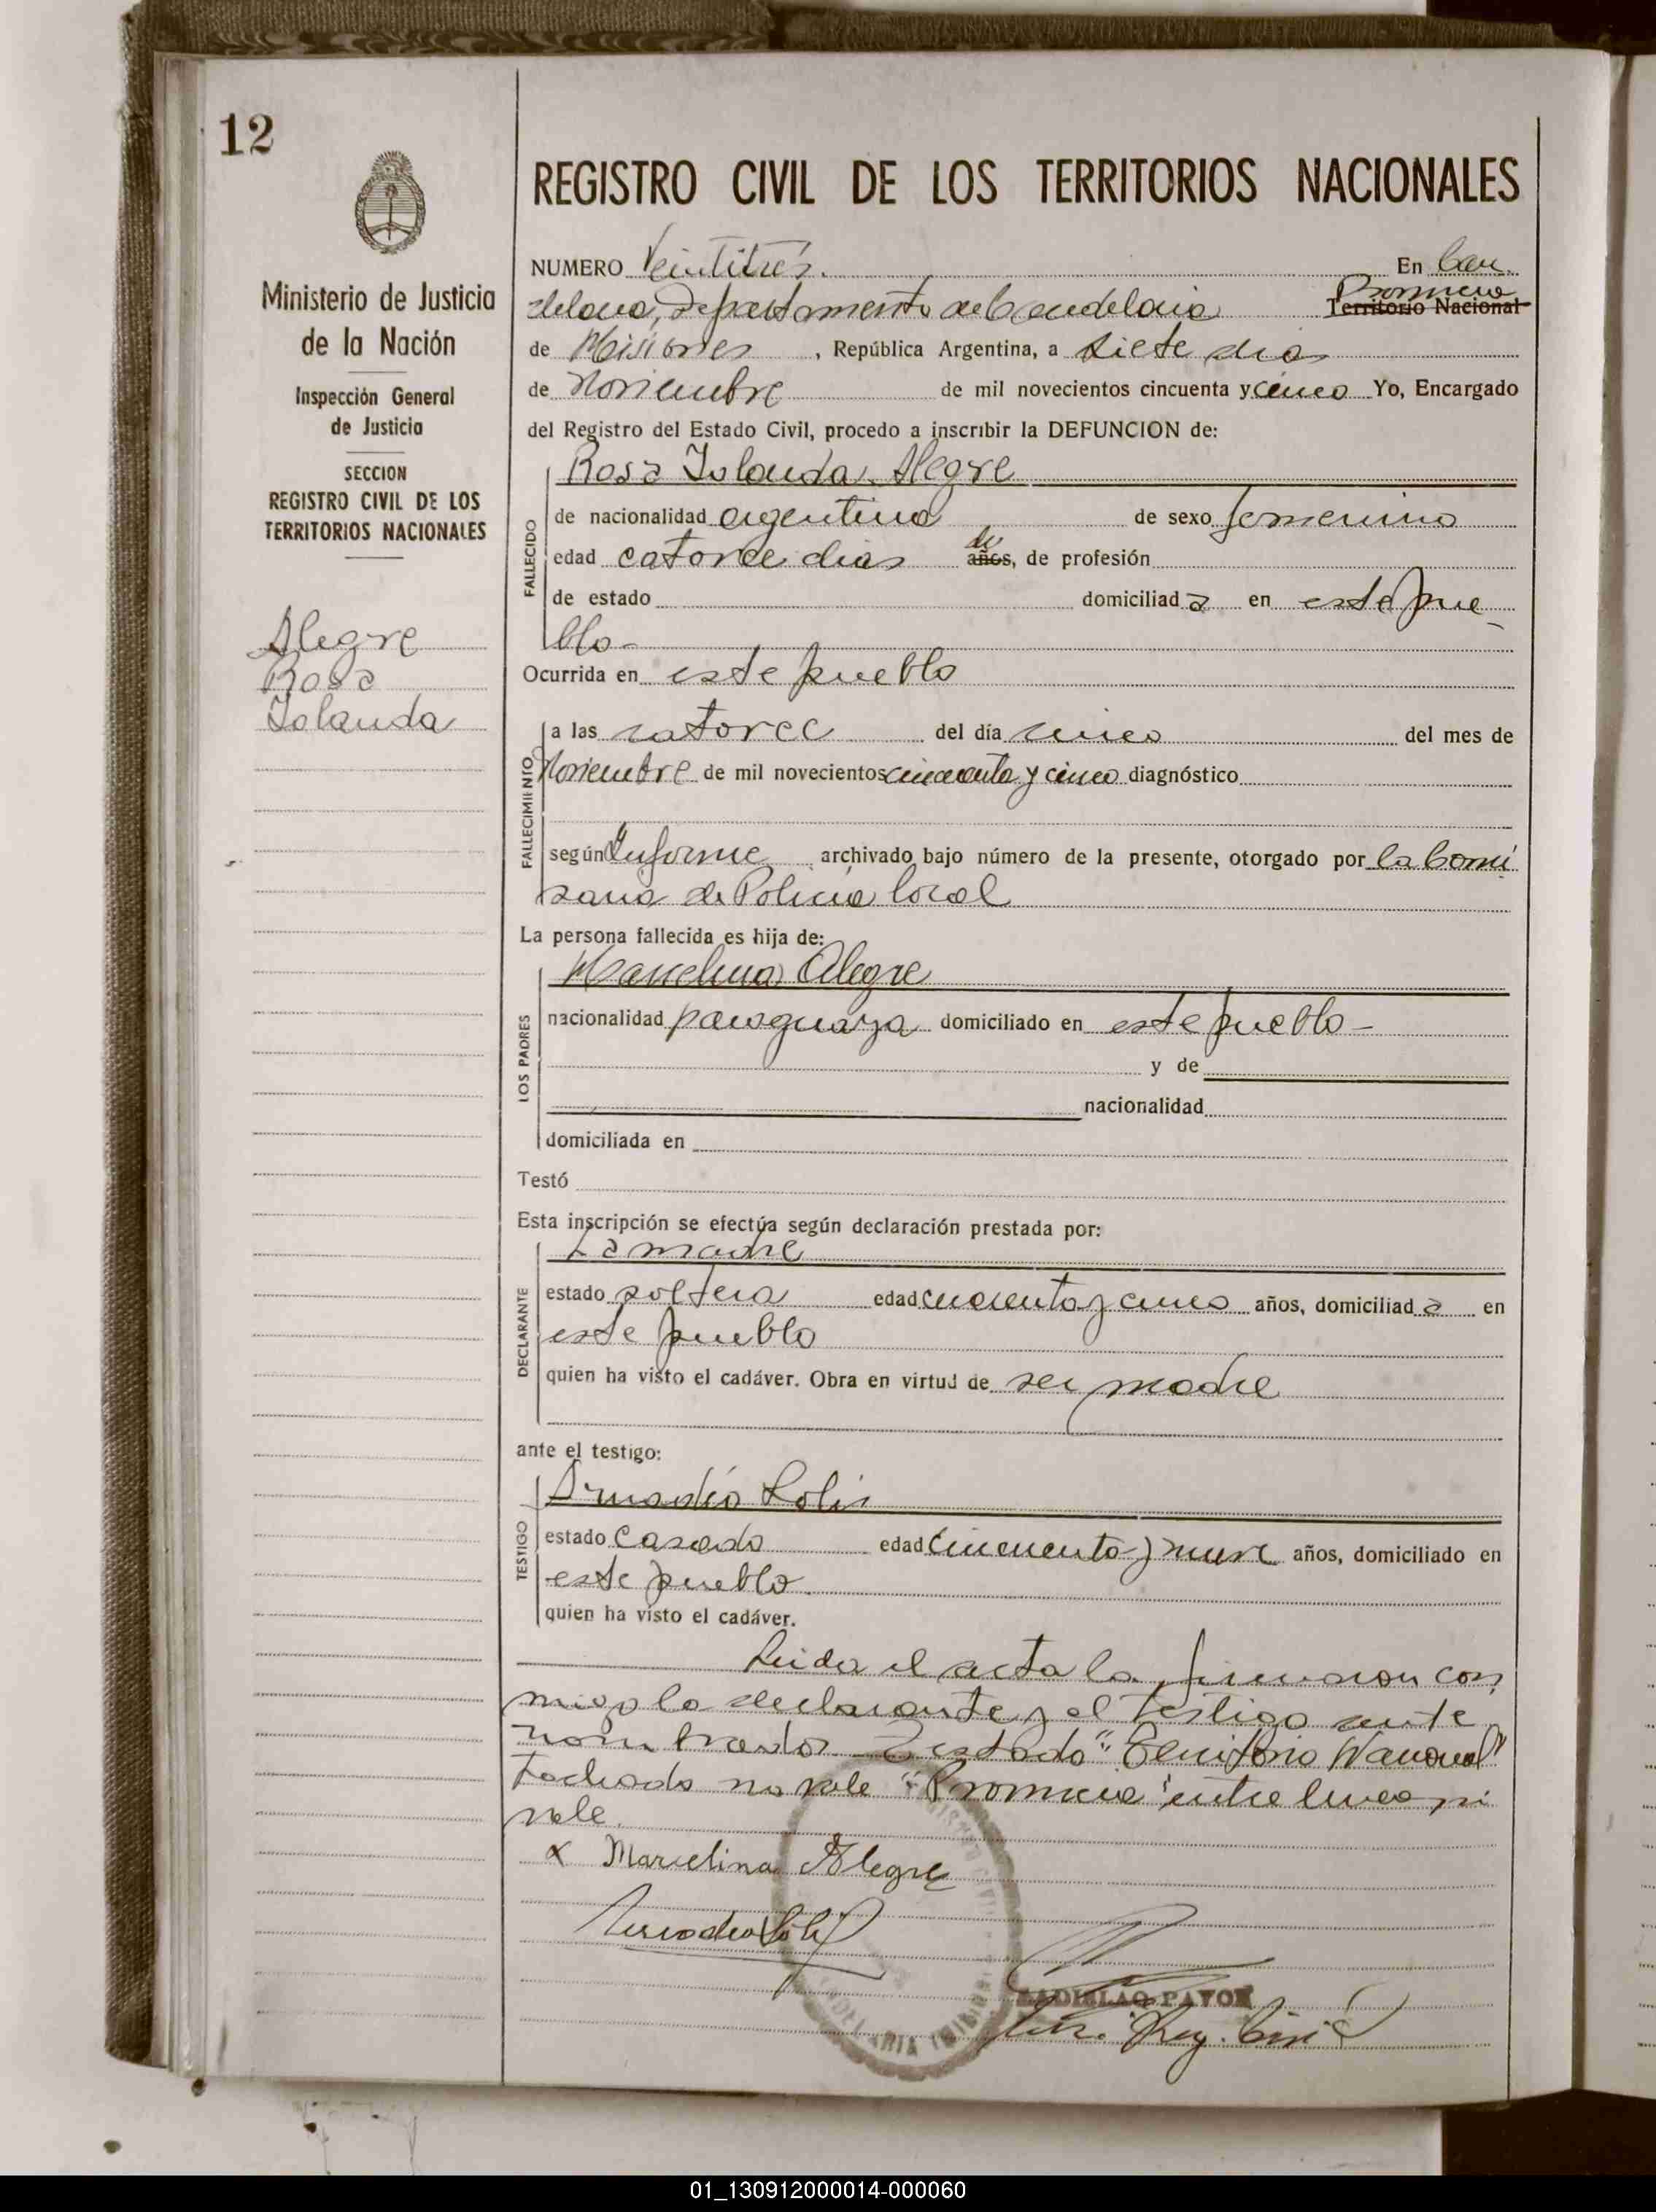 12
REGISTRO CIVIL DE LOS TERRITORIOS NACIONALES
Ministerio de Justicia
de la Nación
Inspección General
de Justicia
SECCION
REGISTRO CIVIL DE LOS
TERRITORIOS NACIONALES
Alegre
Rosa
Iolanda
NUMERO Veintitrés. En Can
delaria, Departamento de Candelaria Provincia Territorio Nacional
de Misiones, República Argentina, a siete días
de Noviembre de mil novecientos cincuenta y cinco Yo, Encargado
del Registro del Estado Civil, procedo a inscribir la DEFUNCION de:
Rosa Iolanda Alegre
FALLECIDO
de nacionalidad argentina de sexo femenino
edad catorce dias años, de profesión
de estado domiciliad a en este pue-
blo-
Ocurrida en este pueblo
FALLECIMIENTO
a las catorce del día cinco del mes de
Noviembre de mil novecientos cincuenta y cinco diagnóstico
según Informe archivado bajo número de la presente, otorgado por la Comi
saria de Policia local
La persona fallecida es hija de:
Marcelina Alegre
LOS PADRES
nacionalidad paraguaya domiciliado en este pueblo-
y de
nacionalidad
domiciliada en
Testó
Esta inscripción se efectúa según declaración prestada por:
La madre
DECLARANTE
estado soltera edad cuarenta y cinco años, domiciliad a en
este pueblo
quien ha visto el cadáver. Obra en virtud de ser madre
ante el testigo:
Arnadio Solis
TESTIGO
estado Casado edad cincuenta y nueve años, domiciliado en
este pueblo.
quien ha visto el cadáver.
Leida el acta la firmaron con
migo la declarante y el testigo ante
nombrados. Testado "Territorio Nacional"
tachado no vale "Provincia" entre lineas si
vale.
x Marcelina Alegre
LADISLAO PAYON
01_130912000014-000060